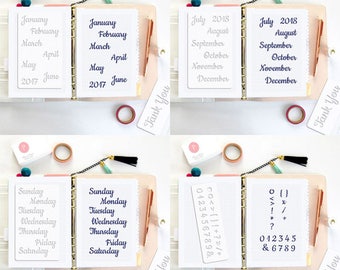 January
February
March
April
May
2017 June
January
February
March
April
May
2017 June
Thank You
July 2018
August
September
October
November
December
July 2018
August
September
October
November
December
Thank You
Sunday
Monday
Tuesday
Wednesday
Thursday
Friday
Saturday
Sunday
Monday
Tuesday
Wednesday
Thursday
Friday
Saturday
0 1 2 3 4 5
& 6 7 8 9